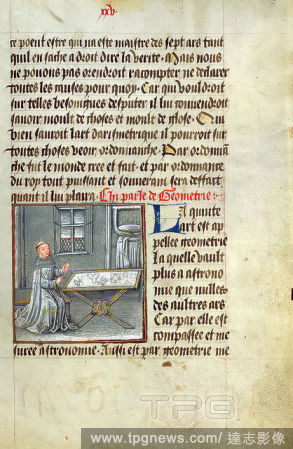 xxv.
ce poent estre qui na este maistre des sept ars tant
quil en sache a droit dire la verite. Mais nous
ne pouons pas orendroit racompter ne declarer
toutes les causes pour quoy. Car qui vouldroit
sur telles besongnes desputer il lui conuendroit
sauoir moult de choses et moult de glose. Qui
bien sauroit lart darismetique il pourroit sur
toutes choses veoir ordonnance. Par ordonnan
che fut le monde cree et fait. et par ordonnance
du roy tout puissant et souuerain sera deffait
quant il lui plaira. Cy parle de Geometrie.
La quinte
art est ap
pellee geometrie
La quelle vault
plus a astrono
mie que nulles
des aultres ars
Car par elle est
compassee et me
suree astronomie. Aussi est par geometrie me
TPG
www.tpgnews.com/ 達志影像